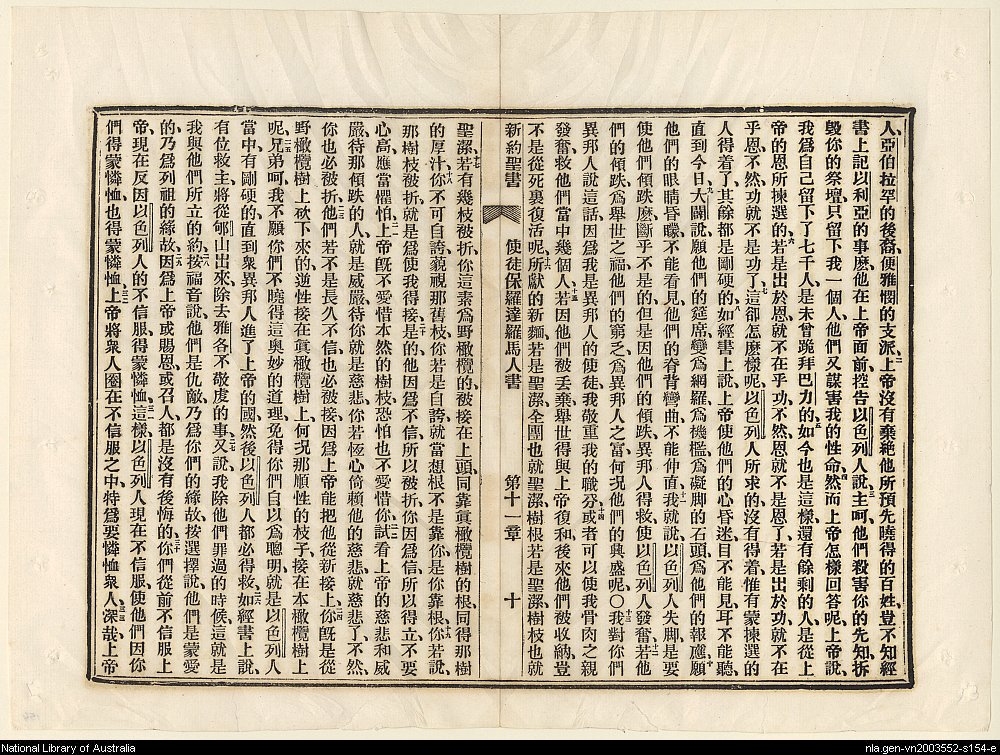 人、亞伯拉罕的後裔、便雅憫的支派、二上帝沒有棄絶他所預先曉得的百姓、豈不知經
書上記以利亞的事麽、他在上帝面前、控告以色列人說、三主呵、他們殺害你的先知、拆
毀你的祭壇、只留下我一個人、他們又謀害我的性命、四然而上帝怎樣回答呢、上帝說、
我爲自己留下了七千人、是未曾跪拜巴力的、五如今也是這樣、還有餘剩的人、是從上
帝的恩所揀選的、六若是出於恩、就不在乎功、不然、恩就不是恩了、若是出於功、就不在
乎恩、不然、功就不是功了、七這卻怎麽樣呢、以色列人所求的沒有得着、惟有蒙揀選的
人得着了、其餘都是剛硬的、八如經書上說、上帝使他們的心昏迷、目不能見、耳不能聽、
直到今日、九大闢說、願他們的筵席變爲網羅、爲機檻、爲礙脚的石頭、爲他們的報應、十願
他們的眼睛昏矇、不能看見、他們的脊背彎曲、不能伸直、十一我就說、以色列人失脚、是要
使他們傾跌麽、斷乎不是的、但是因他們的傾跌、異邦人得救、使以色列人發奮、十二若他
們的傾跌、爲舉世之福、他們的窮乏、爲異邦人之富、何况他們的興盛呢、〇十三我對你們
異邦人說這話、因爲我是異邦人的使徒、我敬重我的職分、十四或者可以使我骨肉之親
發奮、救他們當中幾個人、十五若因他們被丟棄、舉世得與上帝復和、後來他們被收納、豈
不是從死裏復活呢、十六所獻的新麵若是聖潔、全團也就聖潔、樹根若是聖潔、樹枝也就
新約聖書 使徒保羅達羅馬人書 第十一章 十
聖潔、十七若有幾枝被折、你這素爲野橄欖的、被接在上頭、同靠眞橄欖樹的根、同得那樹
的厚汁、十八你不可自誇、藐視那舊枝、你若是自誇、就當想根不是靠你、是你靠根、十九你若說、
那樹枝被折、就是爲使我得接、二十是的、他因爲不信、所以被折、你因爲信、所以得立、不要
心高、應當懼怕、二一上帝旣不愛惜本然的樹枝、恐怕也不愛惜你、二二試看上帝的慈悲和威
嚴、待那傾跌的人、就是威嚴、待你就是慈悲、你若恆心倚賴他的慈悲、就慈悲了、不然、
你也必被折、二三他們若不是長久不信、也必被接、因爲上帝能把他從新接上、二四你旣是從
野橄欖樹上砍下來的、逆性接在眞橄欖樹上、何况那順性的枝子、接在本橄欖樹上
呢、二五兄弟呵、我不願你們不曉得這奥妙的道理、免得你們自以爲聰明、就是以色列人
當中有剛硬的、直到衆異邦人進了上帝的國、二六然後以色列人都必得救、如經書上說、
有位救主、將從郇山出來、除去雅各不敬虔的事、二七又說、我除他們罪過的時候、這就是
我與他們所立的約、二八按福音說、他們是仇敵、乃爲你們的緣故、按選擇說、他們是蒙愛
的、乃爲列祖的緣故、二九因爲上帝或賜恩、或召人、都是沒有後悔的、三十你們從前不信服上
帝、現在反因以色列人的不信服、得蒙憐恤、三一這樣以色列人現在不信服、使他們因你
們得蒙憐恤、也得蒙憐恤、三二上帝將衆人圈在不信服之中、特爲要憐恤衆人、三三深哉、上帝
National Library of Australia
nla.gen-vn2003552-s154-e